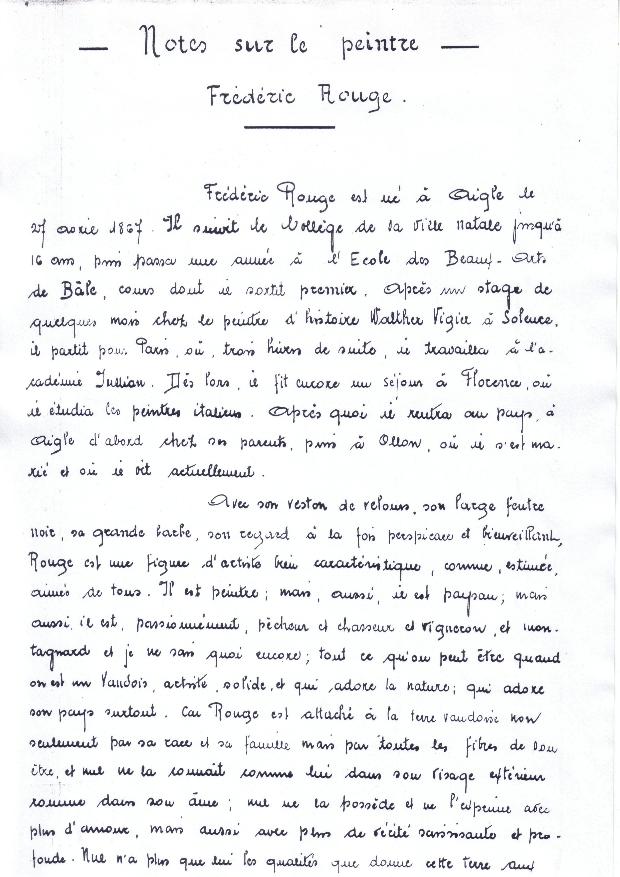 — Notes sur le peintre —
Frédéric Rouge.
Frédéric Rouge est né à Aigle le
27 avril 1867. Il suivit le Collège de la ville natale jusqu'à
16 ans, puis passa une année à l'Ecole des Beaux-Arts
de Bâle, cours dont il sortit premier. Après un stage de
quelques mois chez le peintre d'histoire Walther Vigier à Soleure,
il partit pour Paris, où, trois hivers de suite, il travailla à l'a-
cadémie Jullian. Dès lors, il fit encore un séjour à Florence, où
il étudia les peintres italiens. Après quoi il rentra au pays, à
Aigle d'abord chez ses parents, puis à Ollon, où il s'est ma-
rié et où il vit actuellement.
Avec son veston de velours, son large feutre
noir, sa grande barbe, son regard à la fois perspicace et bienveillant,
Rouge est une figure d'artiste bien caractéristique, connue, estimée,
aimée de tous. Il est peintre; mais, aussi, il est paysan; mais
aussi, il est, passionnément, pêcheur et chasseur et vigneron, et mon-
tagnard et je ne sais quoi encore; tout ce qu'on peut être quand
on est un Vaudois, artiste, solide, et qui adore la nature; qui adore
son pays surtout. Car Rouge est attaché à la terre vaudoise non
seulement par sa race et sa famille mais par toutes les fibres de son
être, et nul ne la connaît comme lui dans son visage extérieur
comme dans son âme; nul ne la possède et ne l'exprime avec
plus d'amour, mais aussi avec plus de vérité saisissante et pro-
fonde. Nul n'a plus que lui les qualités que donne cette terre aux